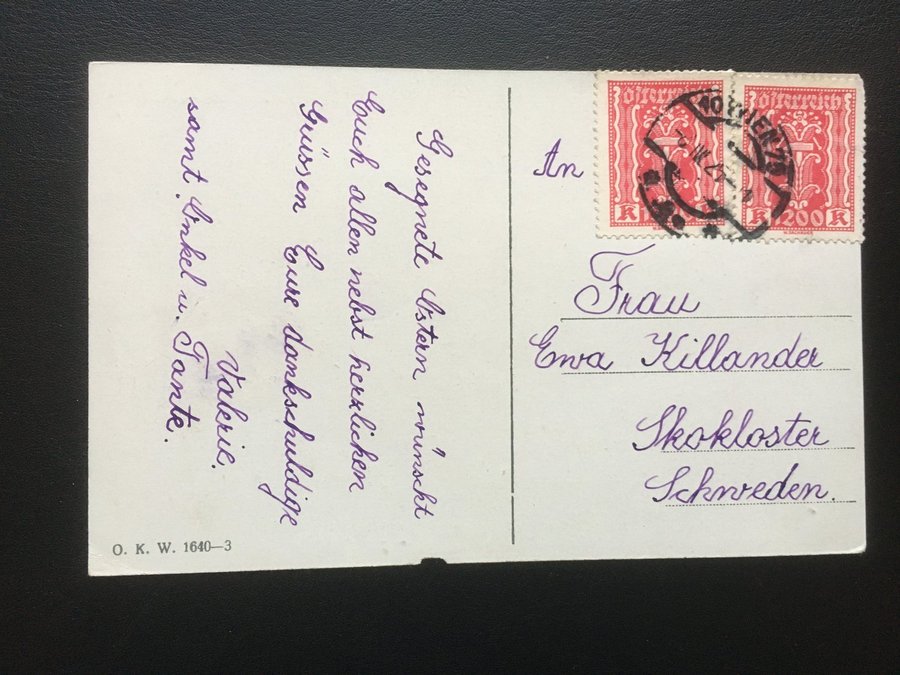 Gesegnete Ostern wünscht
Euch allen nebst herzlichen
Grüssen Eure dankschuldige
Valerie.
samt Onkel u. Tante.
An
Frau
Ewa Killander
Skokloster
Schweden.
Österreich
K
Österreich
K 200 K
WIEN
O. K. W. 1640—3